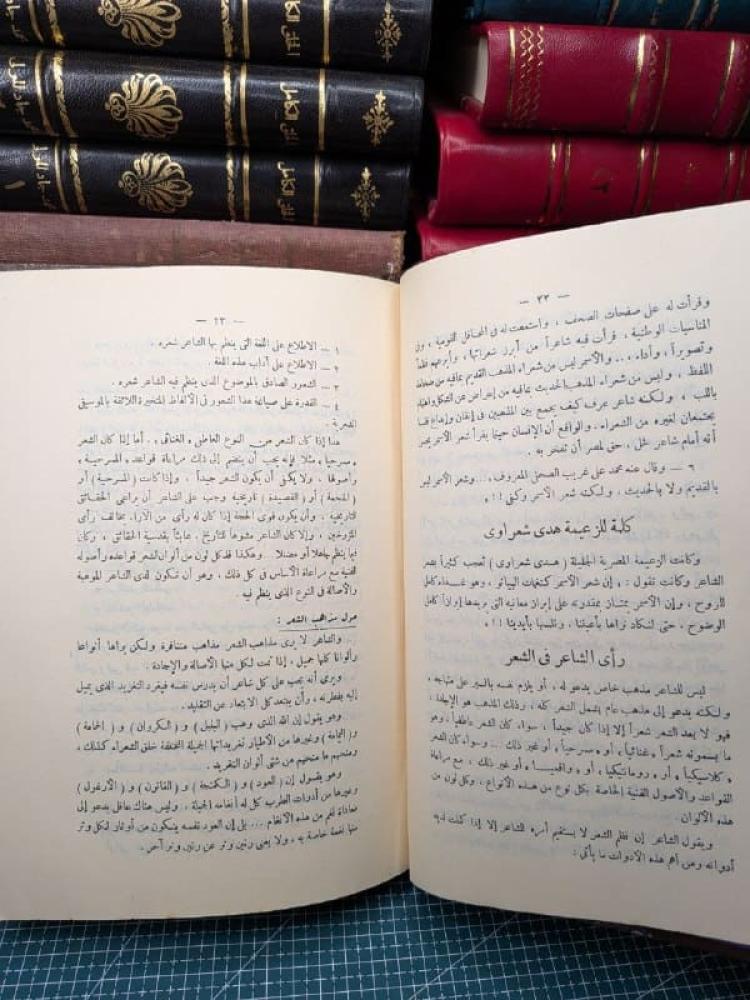 الملك الكامل
الملك الكامل
الملك الكامل
١
— ٢٢ —
وقرأت له على صفحات الصحف ، واستمعت له في المحافل القومية ، وفي
المناسبات الوطنية ، قرأت فيه شاعراً من أبرز شعرائها ، وأبرعهم
وتصويراً ، وأداء ... والأسمر ليس من شعراء المذهب القديم بما فيه من
اللفظ ، وليس من شعراء المذهب الحديث بما فيه من إعراض عن الشكل
باللب ، ولكنه شاعر عرف كيف يجمع بين المذهبين في إتقان وإبداع
يجتمعان لغيره من الشعراء . والواقع أن الإنسان حينما يقرأ شعر الأسمر يحس
أنه أمام شاعر ، حق لمصر أن تفخر به .
٦ — وقال عنه محمد على غريب الصحفى المعروف ... وشعر الأسمر ليس
بالقديم ولا بالحديث ، ولكنه شعر الأسمر وكفى !!
كلمة للزعيمة هدى شعراوى
وكانت الزعيمة المصرية الجليلة ( هدى شعراوى ) تعجب كثيراً بشعر
الشاعر وكانت تقول : إن شعر الأسمر كنغمات البيانو ، وهو غذاء كامل
للروح ، وإن الأسمر يمتاز بمقدرته على إبراز معانيه التى يريدها إبرازاً كامل
الوضوح ، حتى لنكاد نراها بأعيننا ، ونلمسها بأيدينا !!
رأى الشاعر فى الشعر
ليس للشاعر مذهب خاص يدعو له ، أو يلزم نفسه بالسير على منهاجه ،
ولكنه يدعو إلى مذهب عام يشمل الشعر كله ، وذلك المذهب هو الإجادة ،
فهو لا يعد الشعر شعراً إلا إذا كان جيداً ، سواء كان الشعر عاطفياً ، وهو
ما يسمونه شعراً ، غنائياً ، أو ، مسرحياً ، أو غير ذلك ... وسواء كان الشعر
، كلاسيكياً ، أو ، رومانتيكياً ، أو ، واقعياً ، أو غير ذلك ، مع مراعاة
القواعد والأصول الفنية الخاصة بكل نوع من هذه الأنواع ، وكل لون من
هذه الألوان .
ويقول الشاعر إن نظم الشعر لا يستقيم أمره للشاعر إلا إذا كملت لديه
أدواته ومن أهم هذه الأدوات ما يأتى :
— ٢٣ —
١ — الاطلاع على اللغة التى ينظم بها الشاعر شعره .
٢ — الاطلاع على آداب هذه اللغة .
٣ — الشعور الصادق بالموضوع الذى ينظم فيه الشاعر شعره .
٤ — القدرة على صياغة هذا الشعور فى الألفاظ المتخيرة اللائقة بالموسيقى
الشعرية .
هذا إذا كان الشعر من النوع العاطفى ، الغنائى ، أما إذا كان الشعر
، مسرحياً ، مثلا فإنه يجب أن ينضم إلى ذلك مراعاة قواعد ، المسرحية ،
وأصولها ، ولا يكفى أن يكون الشعر جيداً ، وإذا كانت ( المسرحية ) أو
( الملحمة ) أو ( القصيدة ) تاريخية وجب على الشاعر أن يراعى الحقائق
التاريخية ، وأن يكون قوى الحجة إذا كان له رأى من الآراء يخالف رأى
المؤرخين ، وإلا كان الشاعر مشوهاً التاريخ ، عابثاً بقدسية الحقائق ، وكان
فيما ينظم جاهلا أو مضللا ... وهكذا فلكل لون من ألوان الشعر قواعده وأصوله
الفنية مع مراعاة الأساس فى كل ذلك ، وهو أن تكون لدى الشاعر الموهبة
والأصالة فى النوع الذى ينظم فيه .
حول مذاهب الشعر :
والشاعر لا يرى مذاهب الشعر مذاهب متنافرة ولكن يراها أنواعا
وألوانا كلها جميل ، إذا تمت لكل منها الأصالة والإجادة .
ويرى أنه يجب على كل شاعر أن يدرس نفسه فيغرد التغريد الذى يميل
إليه بفطرته ، وأن يبتعد كل الابتعاد عن التقليد .
وهو يقول إن الله الذى وهب ( البلبل ) و ( الكروان ) و ( الحمامة )
و ( اليمامة ) وغيرها من الأطيار تغريداتها الجميلة المختلفة خلق الشعراء كذلك ،
ومنحهم ما منحهم من شتى ألوان التغريد .
وهو يقول إن ( العود ) و ( الكمنجة ) و ( القانون ) و ( الأرغول )
وغيرها من أدوات الطرب كل له أنغامه الجميلة : وليس هناك عاقل يدعو إلى
معاداة نغم من هذه الأنغام ... بل إن العود نفسه يتكون من أوتار لكل وتر
منها نغمة خاصة به ، ولا يغنى رنين وتر عن رنين وتر آخر .